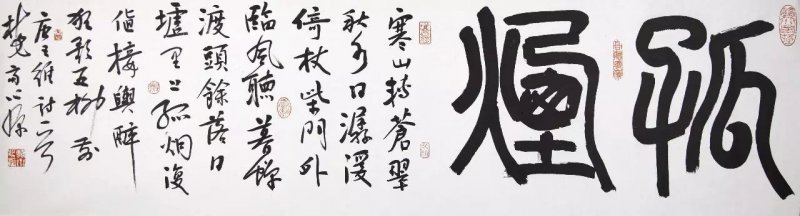 孤煙
寒山轉蒼翠
秋水日潺湲
倚杖柴門外
臨風聽暮蟬
渡頭餘落日
墟里上孤烟復
值接輿醉
狂歌五柳前
唐王維詩一首